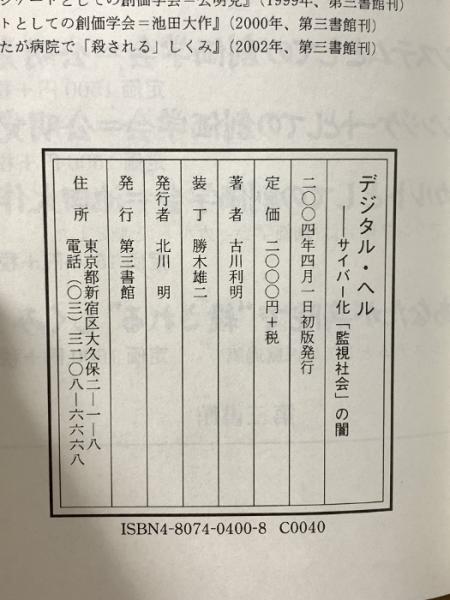 ジケートとしての創価学会＝公明党』（1999年、第三書館刊）
トとしての創価学会＝池田大作』（2000年、第三書館刊）
たが病院で「殺される」しくみ』（2002年、第三書館刊）
デジタル・ヘル
――サイバー化「監視社会」の闇
二〇〇四年四月一日初版発行
定価 二〇〇〇円＋税
著者 古川利明
装丁 勝木雄二
発行者 北川 明
発行 第三書館
住所 東京都新宿区大久保二―一―八
電話（〇三）三二〇八―六六六八
ISBN4-8074-0400-8 C0040